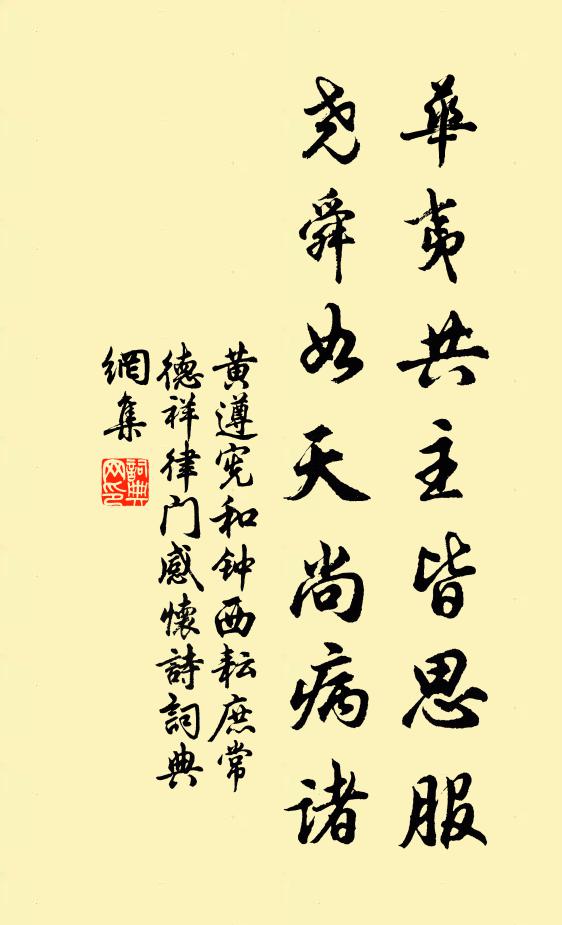 華夷共主皆思服
尧舜如天尚病诸
黄遵宪和钟西耘庶常
德祥律门感懷詩詞典
網集
詞典
网印